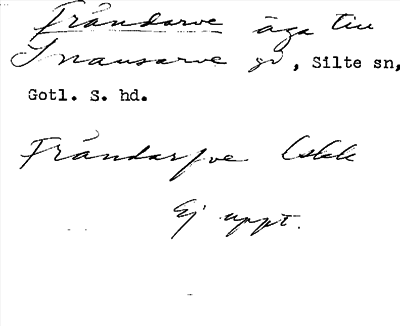 Frändarve äga till
Snausarve gd, Silte sn,
Gotl. S. hd.
Frändarfve
Ej uppt.